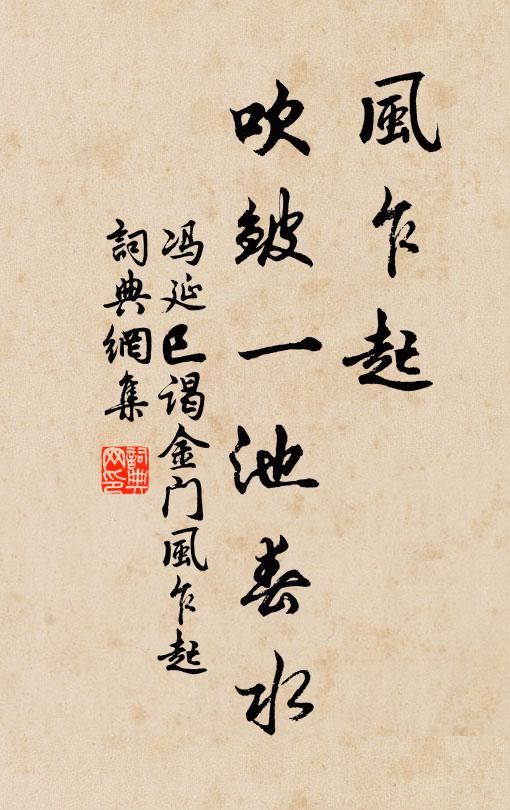 風乍起
吹皺一池春水
冯延巳谒金门風乍起
詞典網集
詞典网印